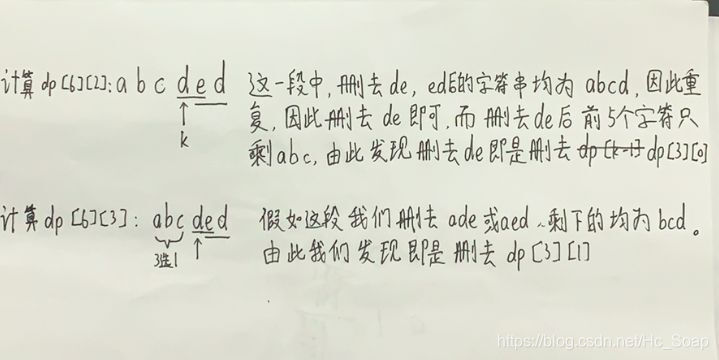 计算dp[6][2]: a b c d e d 这一段中,删去 de, ed后的字符串均为 abcd, 因此重
k 复,因此删去 de 即可,而 删去de后 前5个字符只
剩abc, 由此发现 删去de即是删去 dp[k-1] dp[3][0]
计算dp[6][3]: abc ded 假如这段我们删去 ade或aed、剩下的均为bcd。
3选1 由此我们发现即是 删去 dp[3][1]
https://blog.csdn.net/Hc_Soap